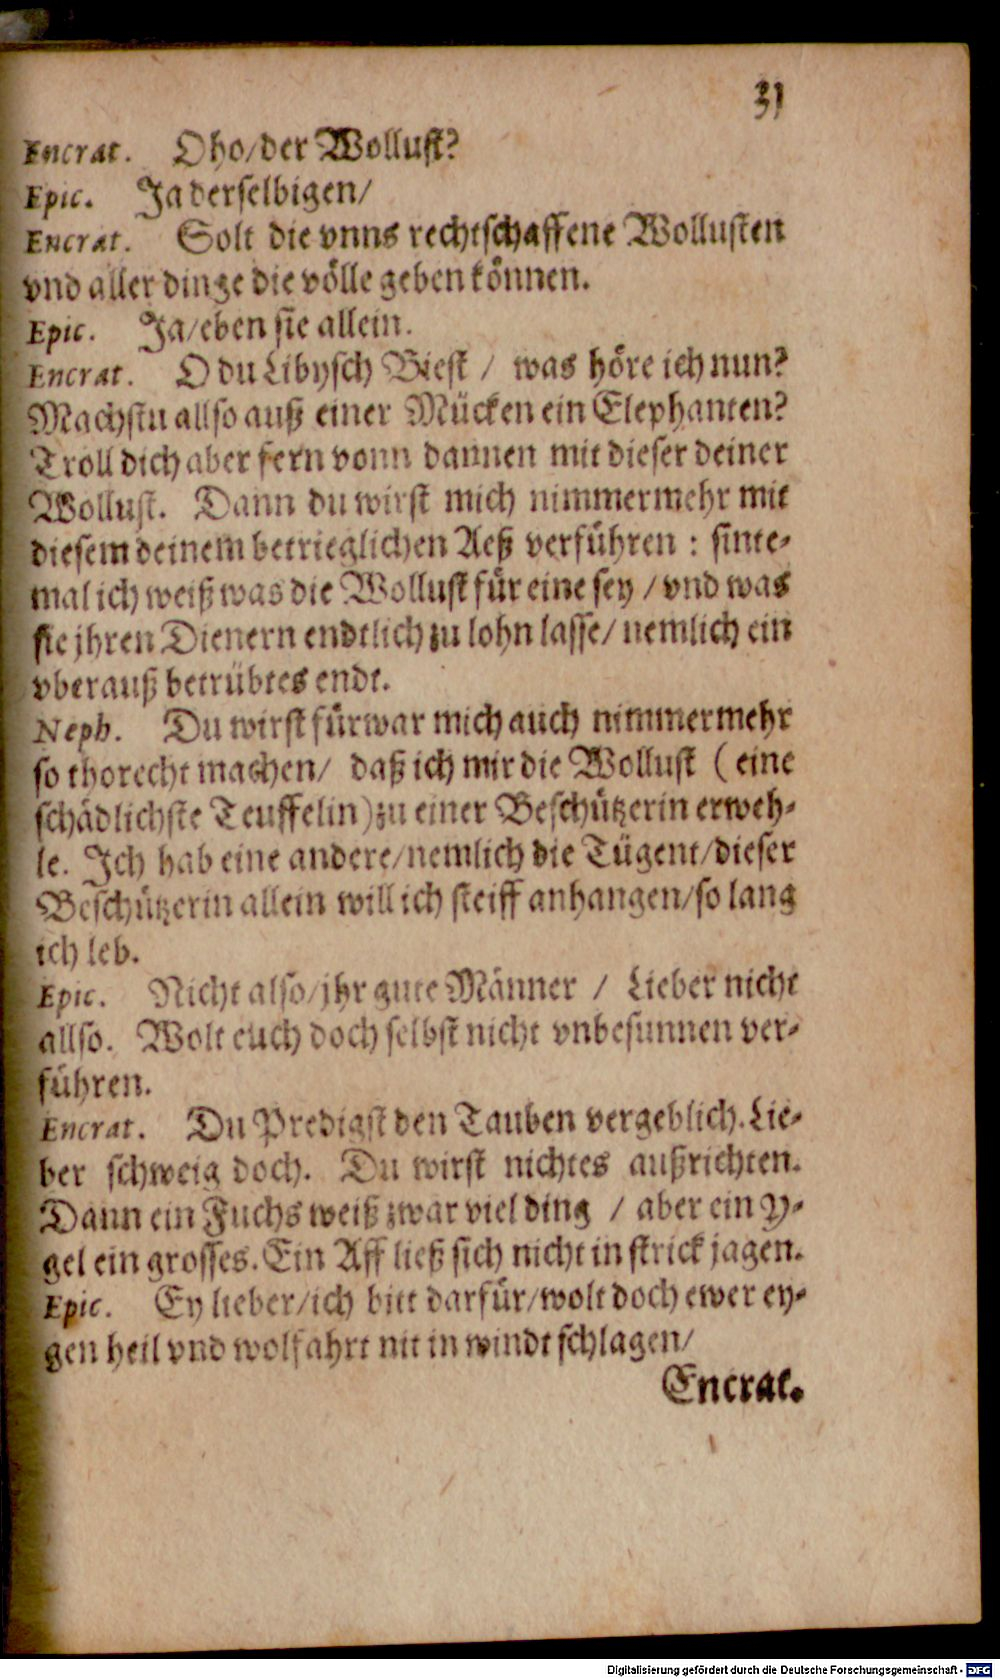 31
Encrat. Oho/der Wollust?
Epic. Ja derselbigen/
Encrat. Solt die vnns rechtschaffene Wollusten
vnd aller dinge die völle geben können.
Epic. Ja/eben sie allein.
Encrat. O du Libysch Biest / was höre ich nun?
Machstu allso auß einer Mücken ein Elephanten?
Troll dich aber fern vonn dannen mit dieser deiner
Wollust. Dann du wirst mich nimmermehr mit
diesem deinem betrieglichen Aeß verführen : sinte-
mal ich weiß was die Wollust für eine sey / vnd was
sie jhren Dienern endtlich zu lohn lasse/ nemlich ein
vberauß betrübtes endt.
Neph. Du wirst fürwar mich auch nimmermehr
so thorecht machen/ daß ich mir die Wollust ( eine
schädlichste Teuffelin) zu einer Beschützerin erweh-
le. Ich hab eine andere/nemlich die Tügent/dieser
Beschützerin allein will ich steiff anhangen/so lang
ich leb.
Epic. Nicht also/jhr gute Männer / Lieber nicht
allso. Wolt euch doch selbst nicht vnbesunnen ver-
führen.
Encrat. Du Predigst den Tauben vergeblich. Lie-
ber schweig doch. Du wirst nichtes außrichten.
Dann ein Fuchs weiß zwar viel ding / aber ein Y-
gel ein grosses. Ein Aff ließ sich nicht in strick jagen.
Epic. Ey lieber/ich bitt darfür/wolt doch ewer ey-
gen heil vnd wolfahrt nit in windt schlagen/
Encrat.
Digitalisierung gefördert durch die Deutsche Forschungsgemeinschaft - DFG